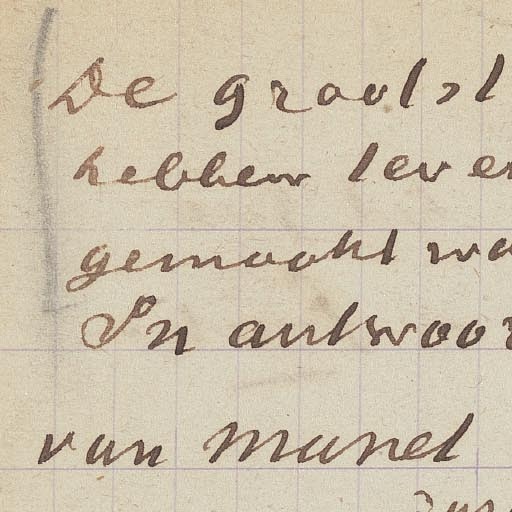 De grootst
hebben lever
gemaakt wa
In antwoor
van Manet